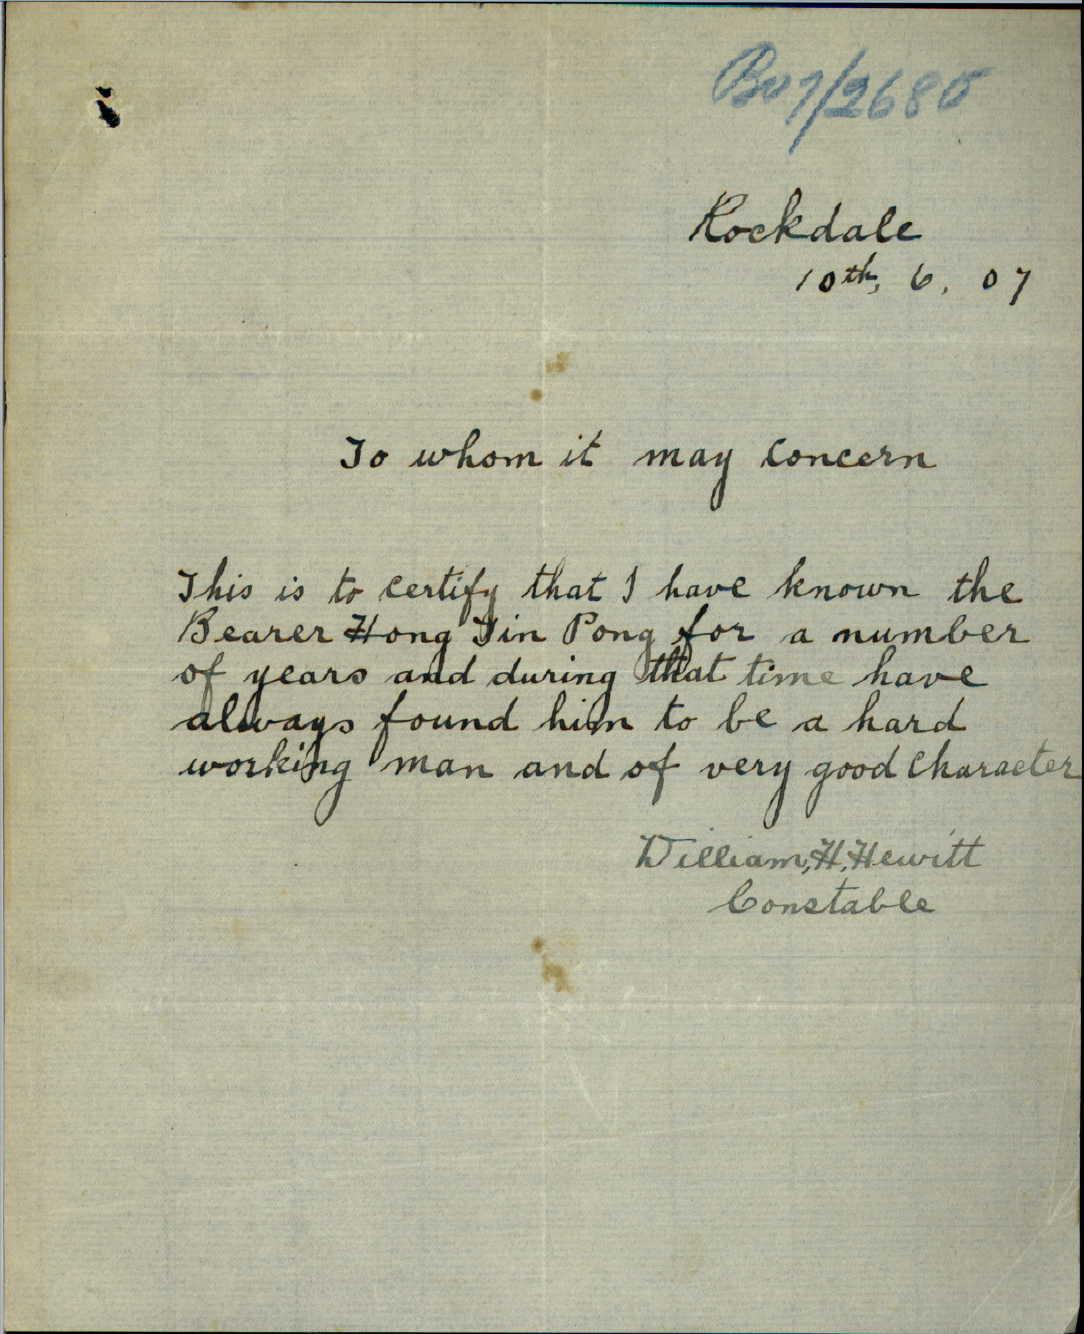 B07/2685
Rockdale
10th, 6, 07
To whom it may Concern
This is to certify that I have known the
Bearer Hong Yin Pong for a number
of years and during that time have
always found him to be a hard
working man and of very good Character
William, H, Hewitt
Constable